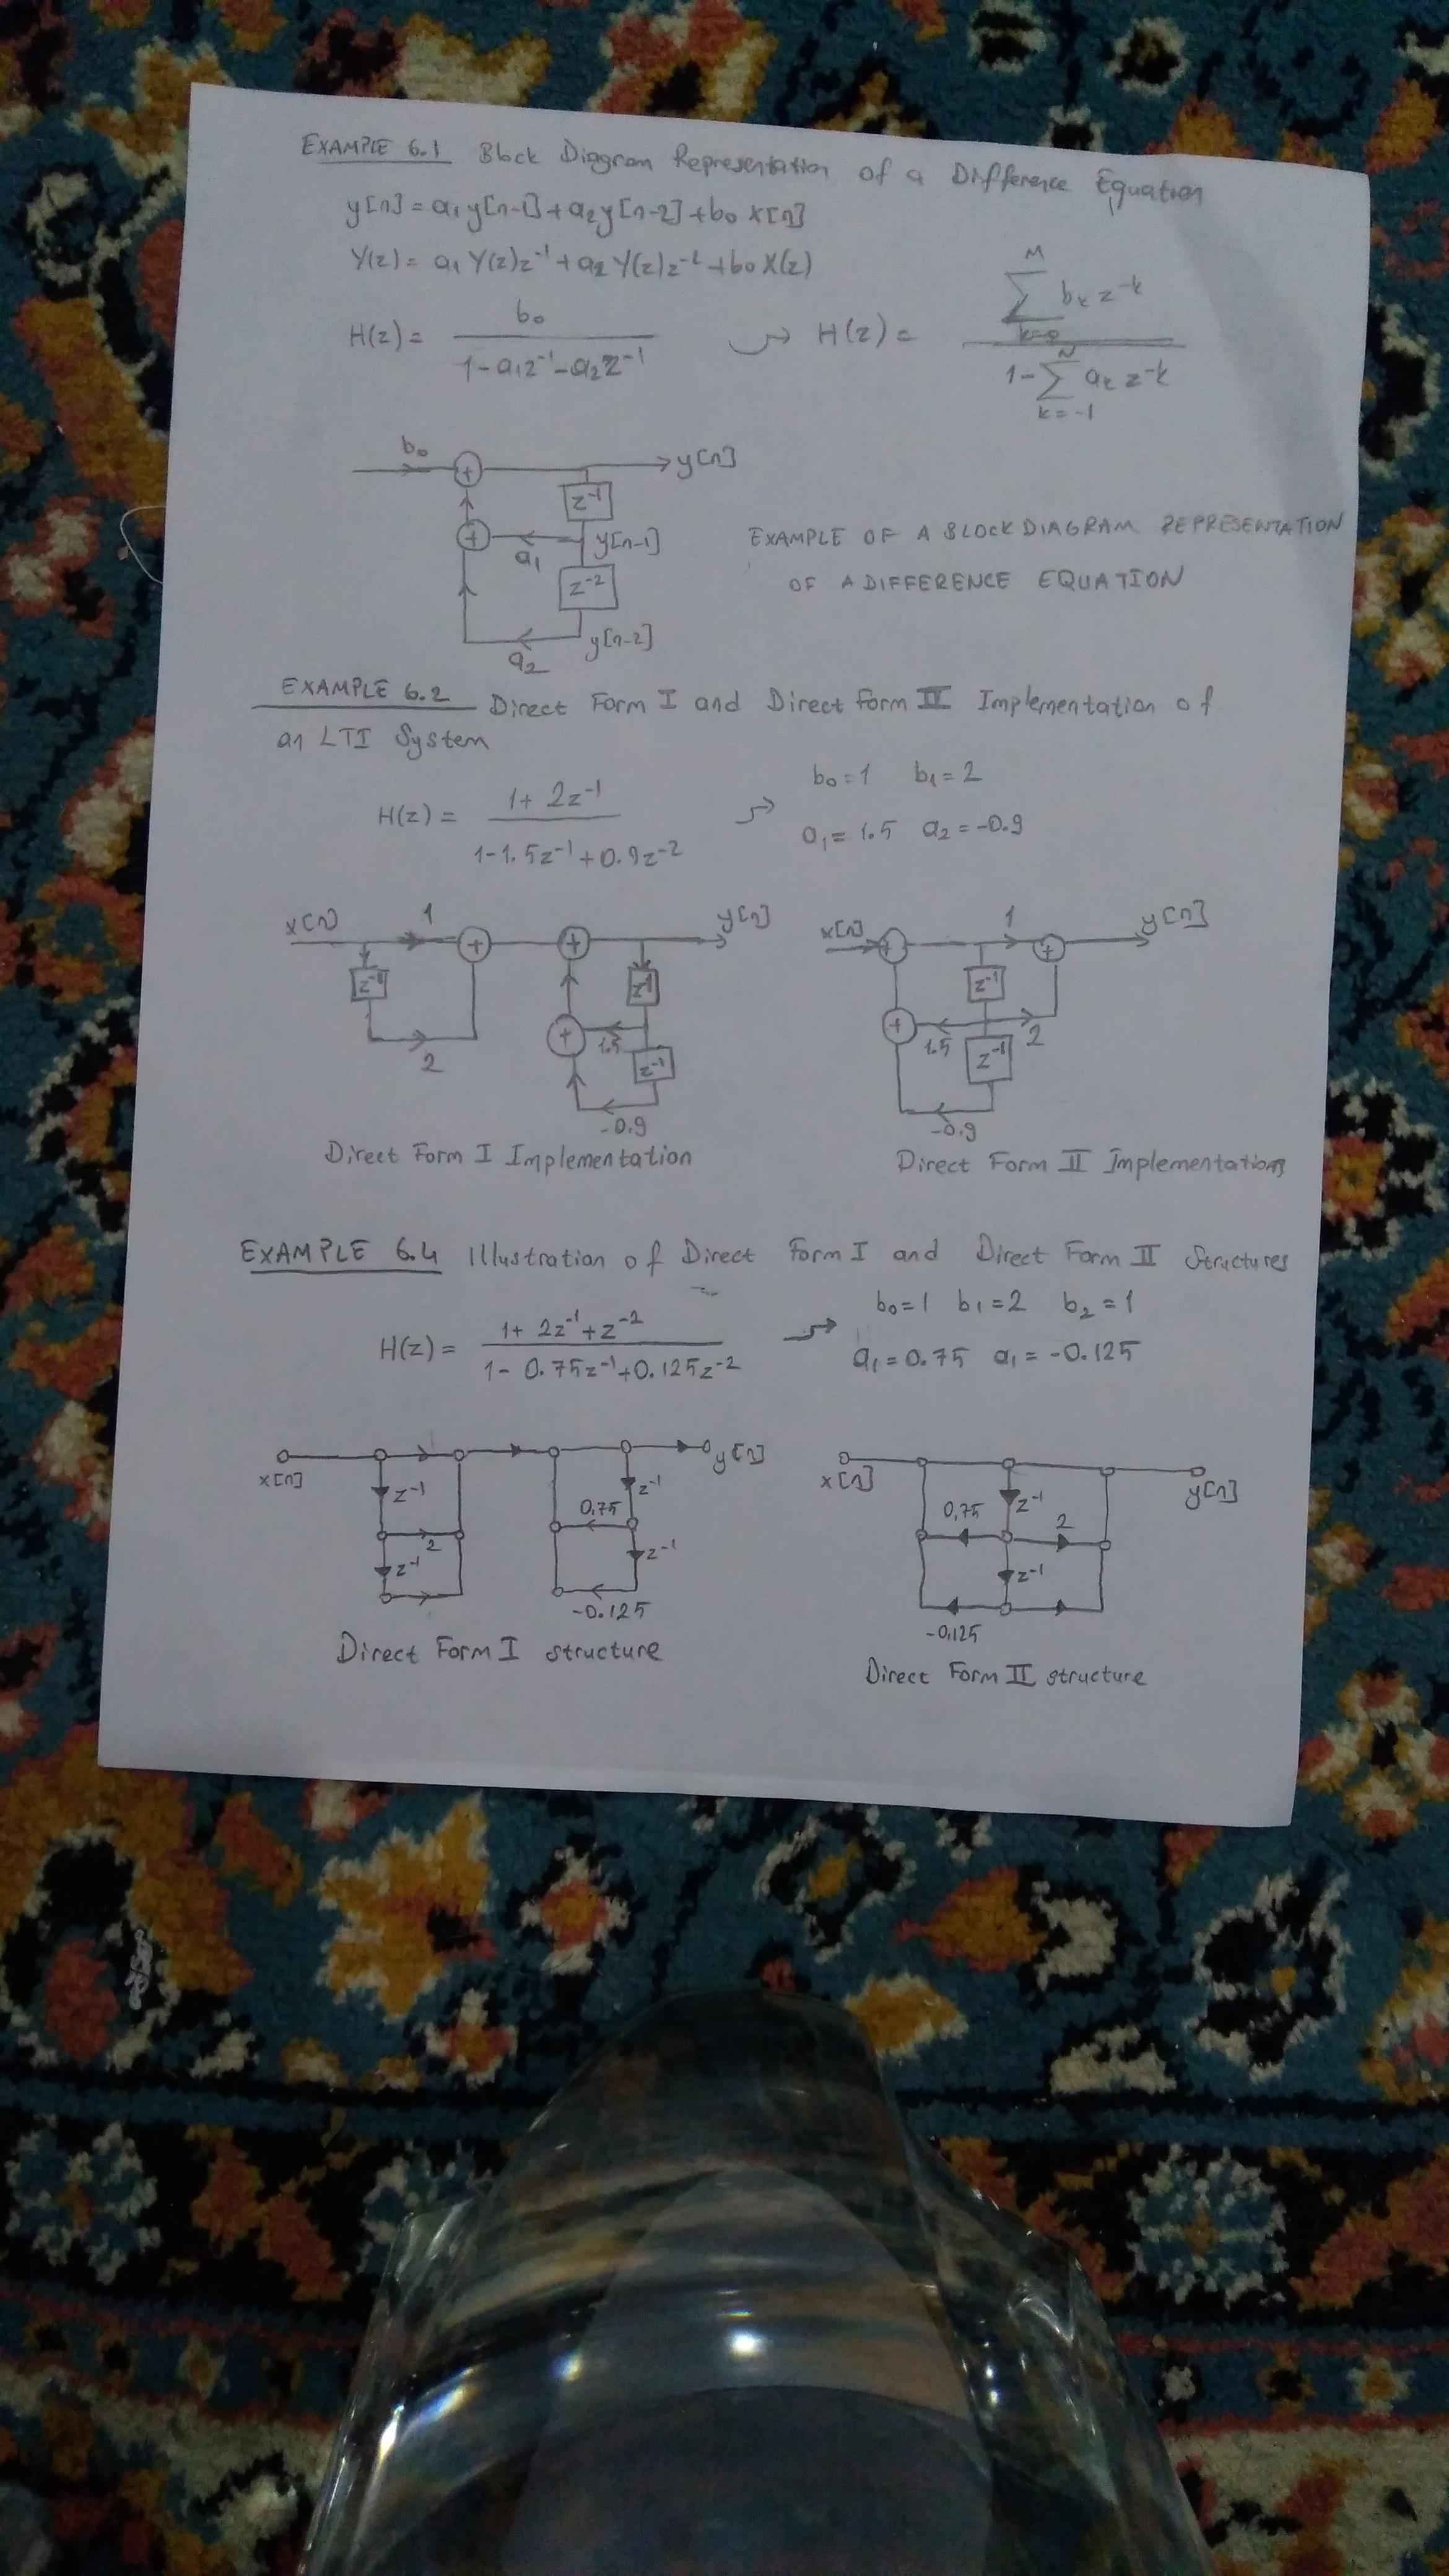 EXAMPLE 6.1 Block Diagram Representation of a Difference Equation
y[n] = a₁y[n-1]+a₂y[n-2]+b₀ x[n]
Y(z) = a₁ Y(z)z⁻¹+a₂ Y(z)z⁻²+b₀ X(z)
H(z) = b₀ / 1-a₁z⁻¹-a₂z⁻¹ → H(z) = M ∑ k=0 bₖ z⁻ᵏ / 1- N ∑ k=-1 aₖ z⁻ᵏ
b₀ + y[n]
z⁻¹
+ a₁ y[n-1]
z⁻²
a₂ y[n-2]
EXAMPLE OF A BLOCK DIAGRAM REPRESENTATION
OF A DIFFERENCE EQUATION
EXAMPLE 6.2 Direct Form I and Direct Form II Implementation of
an LTI System
H(z) = 1+ 2z⁻¹ / 1-1.5z⁻¹+0.9z⁻²
b₀=1 b₁=2
a₁= 1.5 a₂=-0.9
x[n] 1 + + y[n]
z⁻¹ z⁻¹
2 + 1.5
z⁻¹
-0.9
Direct Form I Implementation
x[n] + 1 + y[n]
z⁻¹
+ 1.5 2
z⁻¹
-0.9
Direct Form II Implementation
EXAMPLE 6.4 Illustration of Direct Form I and Direct Form II Structures
H(z) = 1+ 2z⁻¹+z⁻² / 1- 0.75z⁻¹+0.125z⁻²
b₀=1 b₁=2 b₂=1
a₁=0.75 a₁=-0.125
x[n] y[n]
z⁻¹ z⁻¹
2 0,75
z⁻¹ z⁻¹
-0.125
Direct Form I structure
x[n] y[n]
z⁻¹
0,75 2
z⁻¹
-0,125
Direct Form II structure